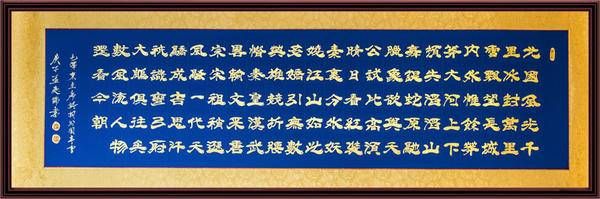 北國風光千
里冰封萬里
雪飄望長城
内外惟餘莽
莽大河上下
頓失滔滔山
舞銀蛇原馳
蠟象欲與天
公試比高須
晴日看紅裝
素裹分外妖
嬈江山如此
多嬌引無數
英雄競折腰
惜秦皇漢武
略輸文采唐
宗宋祖稍遜
風騷一代天
驕成吉思汗
只識彎弓射
大雕俱往矣
數風流人物
還看今朝
毛澤東主席詩詞沁園春雪